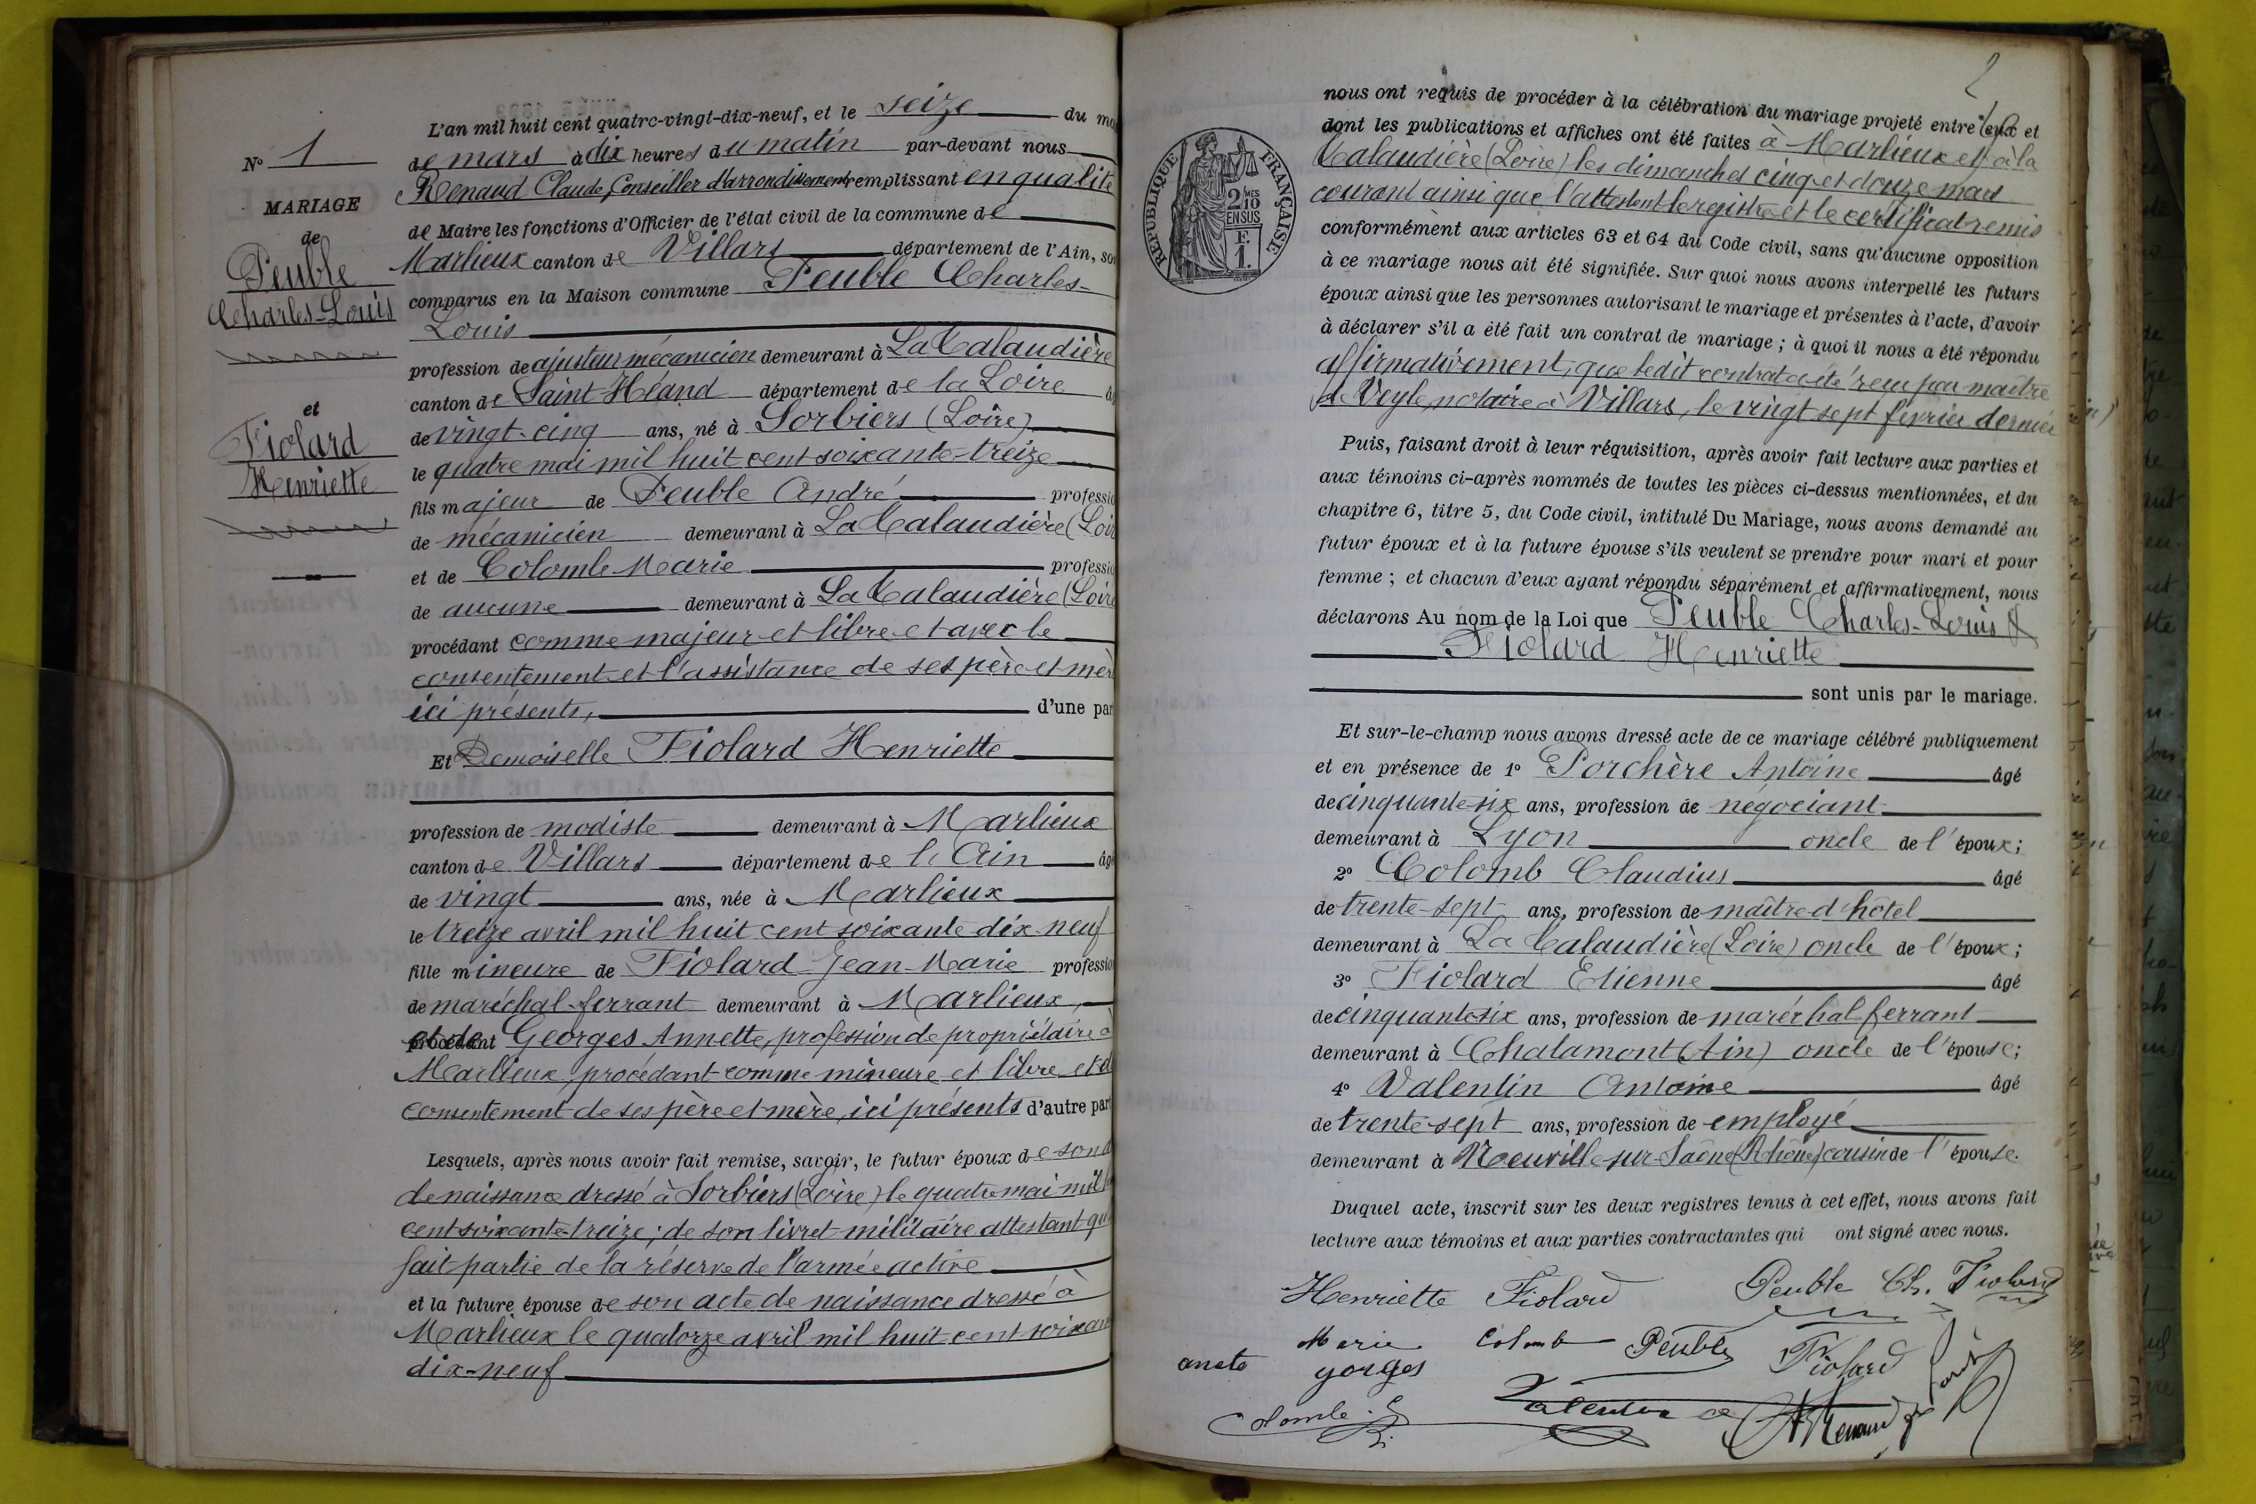 N° 1
MARIAGE
de
Peuble
Charles-Louis
et
Fiolard
Henriette
L'an mil huit cent quatre-vingt-dix-neuf, et le seize du mo
de mars à dix heures du matin par-devant nous
Renaud Claude, Conseiller d'arrondissement remplissant en qualité
de Maire les fonctions d'Officier de l'état civil de la commune de
Marlieux canton de Villars département de l'Ain, so
comparus en la Maison commune Peuble Charles-
Louis
profession de ajusteur mécanicien demeurant à La Talaudière
canton de Saint-Héand département de la Loire
de vingt-cinq ans, né à Sorbiers (Loire)
le quatre mai mil huit cent soixante-treize
fils majeur de Peuble André professio
de mécanicien demeurant à La Talaudière (Loir
et de Colomb Marie professio
de aucune demeurant à La Talaudière (Loire
procédant comme majeur et libre et avec le
consentement et l'assistance de ses père et mèr
ici présents, d'une par
Et Demoiselle Fiolard Henriette
profession de modiste demeurant à Marlieux
canton de Villars département de l'Ain âgé
de vingt ans, née à Marlieux
le treize avril mil huit cent soixante dix-neuf
fille mineure de Fiolard Jean-Marie professio
de maréchal-ferrant demeurant à Marlieux,
et de Georges Annette, profession de propriétaire à
Marlieux, procédant comme mineure et libre et d
consentement de ses père et mère, ici présents d'autre par
Lesquels, après nous avoir fait remise, savoir, le futur époux de son
de naissance dressé à Sorbiers (Loire) le quatre mai mil
cent soixante-treize; de son livret militaire attestant qu
fait partie de la réserve de l'armée active
et la future épouse de son acte de naissance dressé à
Marlieux le quatorze avril mil huit cent soixan
dix-neuf
2
nous ont requis de procéder à la célébration du mariage projeté entre eux et
dont les publications et affiches ont été faites à Marlieux et à la
Talaudière (Loire) les dimanches cinq et douze mars
courant ainsi que l'attestent le registre et le certificat remis
conformément aux articles 63 et 64 du Code civil, sans qu'aucune opposition
à ce mariage nous ait été signifiée. Sur quoi nous avons interpellé les futurs
époux ainsi que les personnes autorisant le mariage et présentes à l'acte, d'avoir
à déclarer s'il a été fait un contrat de mariage; à quoi il nous a été répondu
affirmativement, que ledit contrat a été reçu par maître
de Veyle, notaire à Villars, le vingt sept février dernier
Puis, faisant droit à leur réquisition, après avoir fait lecture aux parties et
aux témoins ci-après nommés de toutes les pièces ci-dessus mentionnées, et du
chapitre 6, titre 5, du Code civil, intitulé Du Mariage, nous avons demandé au
futur époux et à la future épouse s'ils veulent se prendre pour mari et pour
femme; et chacun d'eux ayant répondu séparément et affirmativement, nous
déclarons Au nom de la Loi que Peuble Charles-Louis &
Fiolard Henriette
sont unis par le mariage.
Et sur-le-champ nous avons dressé acte de ce mariage célébré publiquement
et en présence de 1° Porchère Antoine âgé
de cinquante-six ans, profession de négociant
demeurant à Lyon oncle de l'époux;
2° Colomb Claudius âgé
de trente-sept ans, profession de maître d'hôtel
demeurant à La Talaudière (Loire) oncle de l'époux;
3° Fiolard Etienne âgé
de cinquante-six ans, profession de maréchal-ferrant
demeurant à Chalamont (Ain) oncle de l'épouse;
4° Valentin Antoine âgé
de trente-sept ans, profession de employé
demeurant à Neuville-sur-Saône (Rhône) cousin de l'épouse.
Duquel acte, inscrit sur les deux registres tenus à cet effet, nous avons fait
lecture aux témoins et aux parties contractantes qui ont signé avec nous.
Henriette Fiolard Peuble Ch. Fiolard
Marie Colomb Peuble Fiolard
anete gorges
Valentin
Renaud
RÉPUBLIQUE FRANÇAISE
2 MES
10
EN SUS
F.
1.